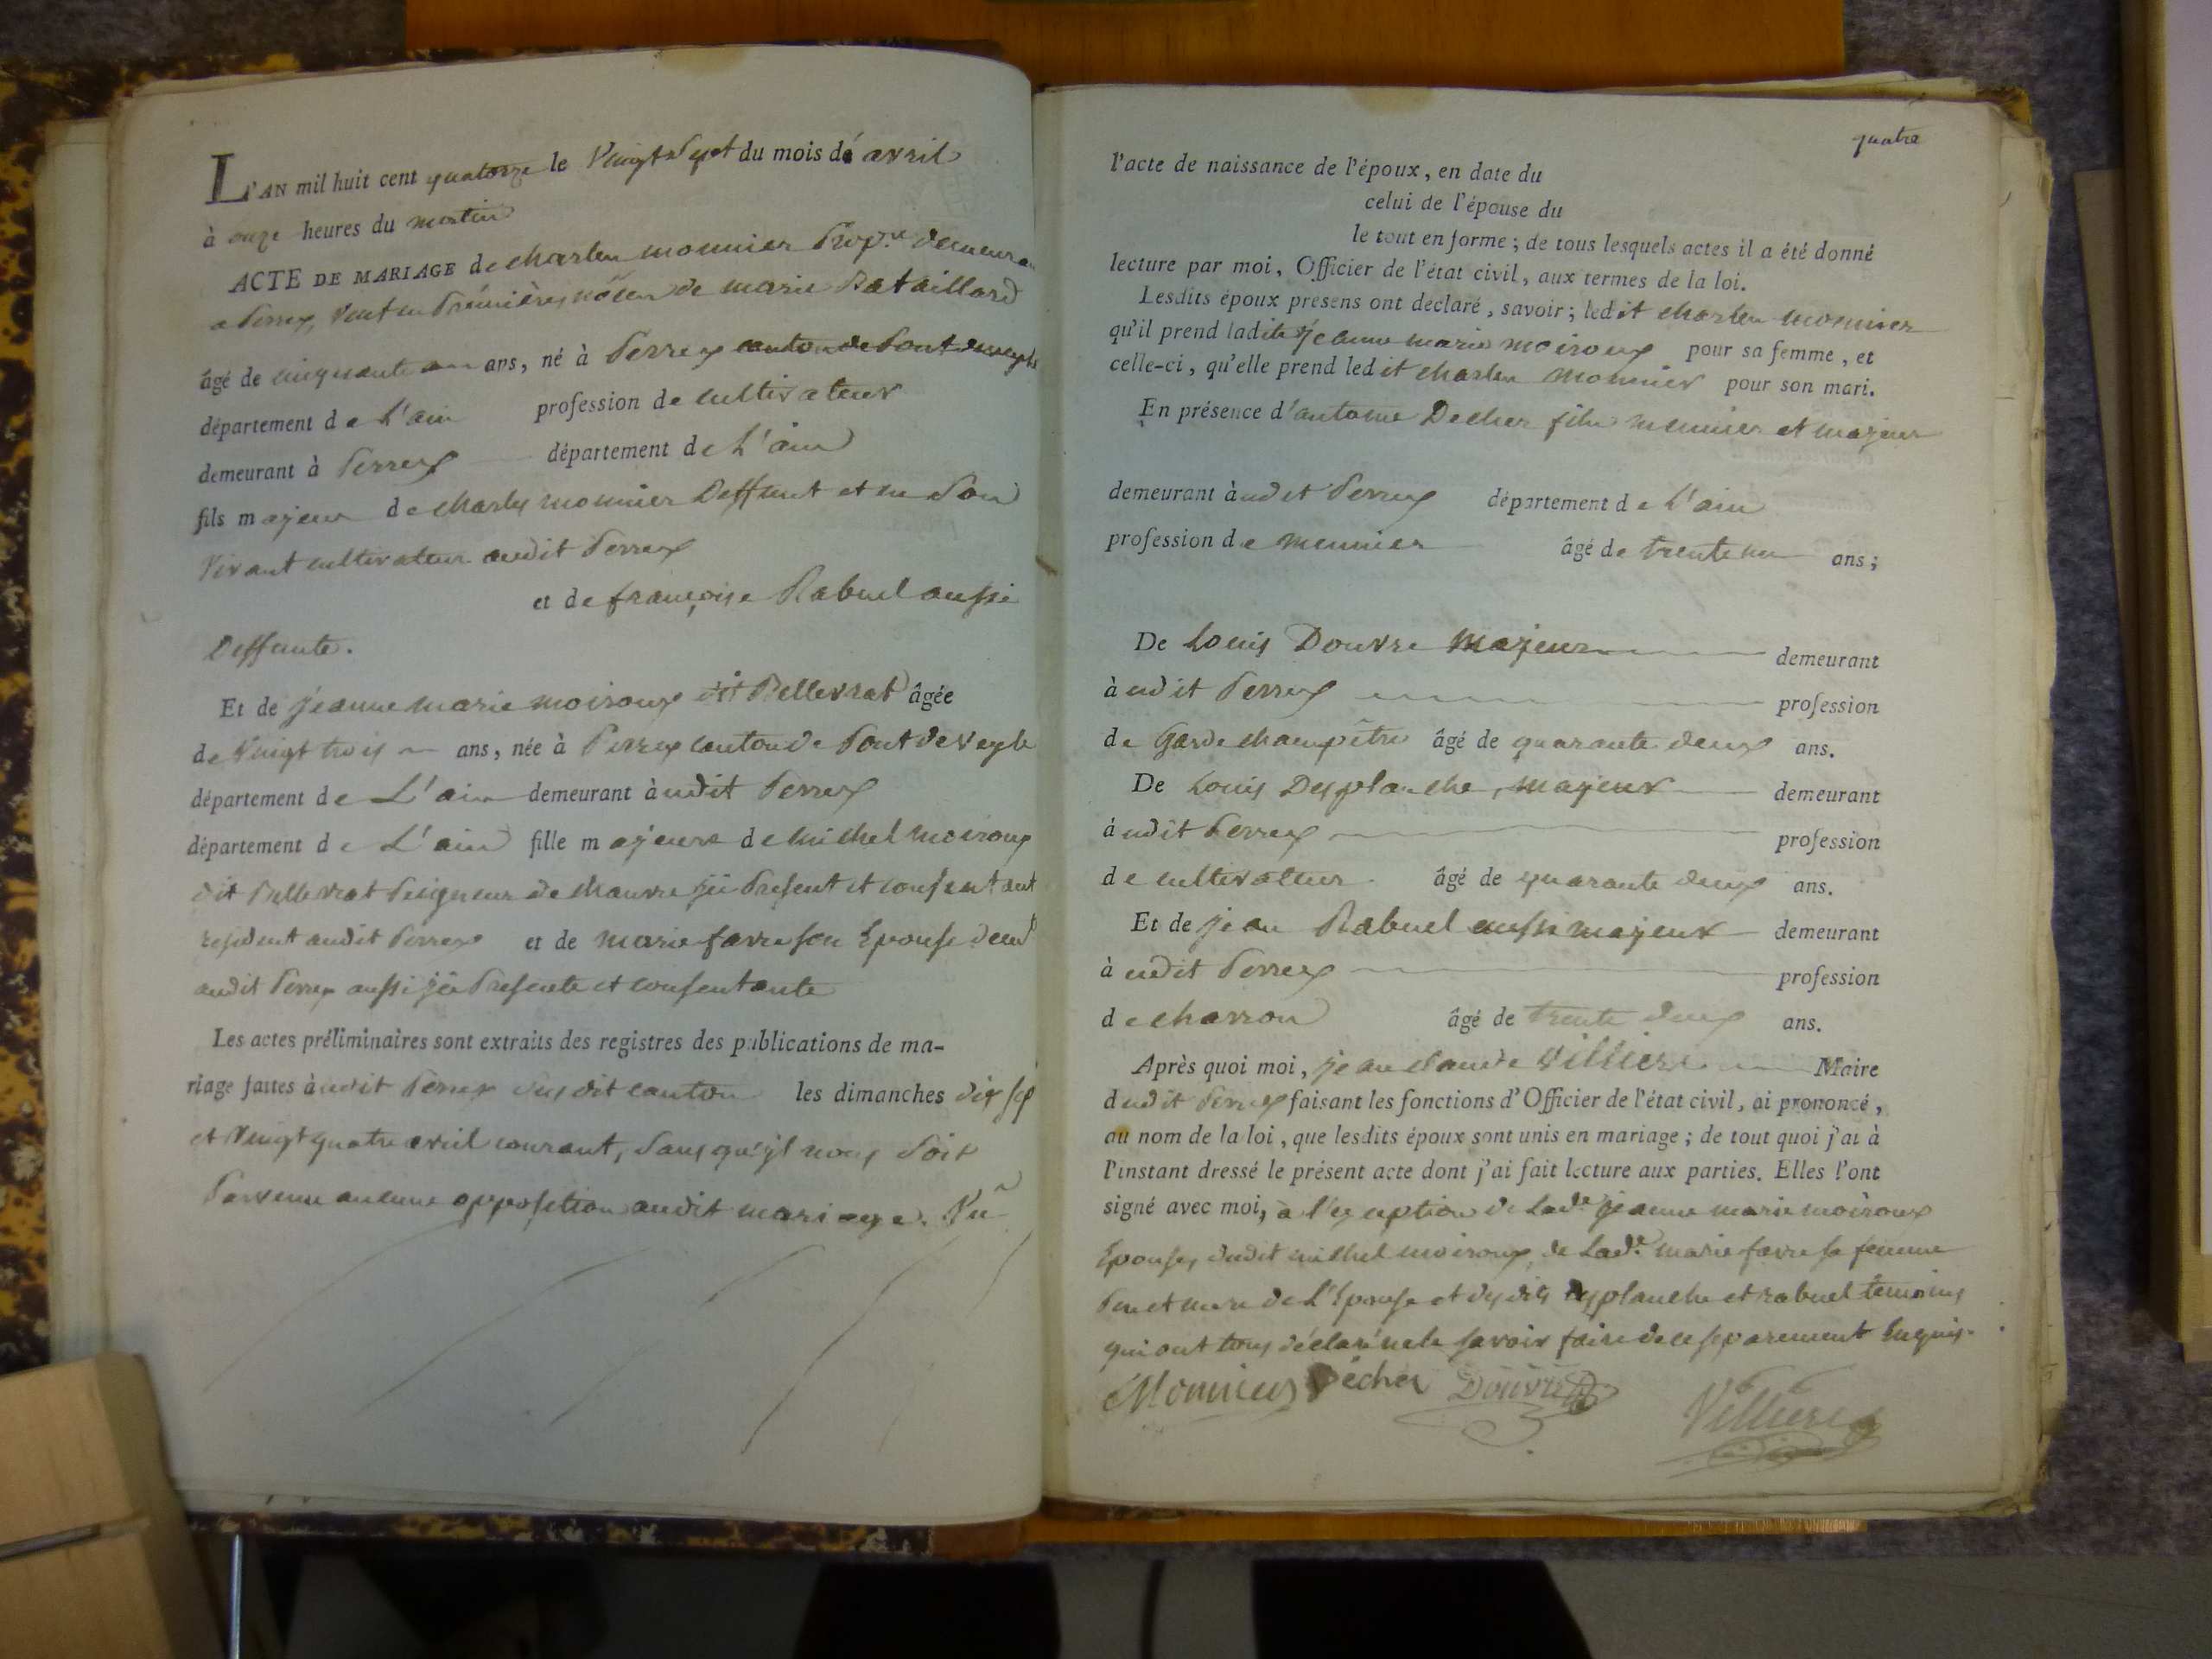 L'AN mil huit cent quatorze le Vingt Sept du mois de avril
à onze heures du matin
ACTE DE MARIAGE de charles monnier Prop.re demeura
a Perrex, veuf en Prémières nôces de marie Bataillard
âgé de cinquante ans, né à Perrex canton de Pont de veyle
département de L'ain profession de cultivateur
demeurant à Perrex département de L'ain
fils majeur de charles monnier Deffunt et en Son
Vivant cultivateur audit Perrex
et de françoise Rabuel aussi
Deffunte.
Et de jeanne marie moiroux dit Bellevrat âgée
de Vingt trois ans, née à Perrex canton de Pont de veyle
département de L'ain demeurant à udit Perrex
département de L'ain fille majeure de Michel moiroux
dit Bellevrat Peigneur de chanvre ici Présent et consentant
résident audit Perrex et de marie favre son Epouse
audit Perrex aussi ici Présente et consentante
Les actes préliminaires sont extraits des registres des publications de ma-
riage faites à udit Perrex Susdit canton les dimanches dix sep
et Vingt quatre avril courant, Sans qu'il nous Soit
Parvenu aucune opposition audit mariage. Vu
quatre
l'acte de naissance de l'époux, en date du
celui de l'épouse du
le tout en forme; de tous lesquels actes il a été donné
lecture par moi, Officier de l'état civil, aux termes de la loi.
Lesdits époux présens ont déclaré, savoir; ledit charles monnier
qu'il prend ladite jeanne marie moiroux pour sa femme, et
celle-ci, qu'elle prend ledit charles monnier pour son mari.
En présence d'antoine Decher fils meunier et majeur
demeurant à udit Perrex département de L'ain
profession de meunier âgé de trente un ans;
De Louis Douvre majeur demeurant
à udit Perrex profession
de Garde champêtre âgé de quarante deux ans.
De Louis Desplanche, majeur demeurant
à udit Perrex profession
de cultivateur âgé de quarante deux ans.
Et de jean Rabuel aussi majeur demeurant
à udit Perrex profession
de charron âgé de trente deux ans.
Après quoi moi, jean claude Villiere Maire
dudit Perrex faisant les fonctions d'Officier de l'état civil, ai prononcé,
au nom de la loi, que lesdits époux sont unis en mariage; de tout quoi j'ai à
l'instant dressé le présent acte dont j'ai fait lecture aux parties. Elles l'ont
signé avec moi, à l'exception de Lad.e jeanne marie moiroux
Epouse, dudit michel moiroux, de Lad.e marie favre sa femme
Pere et mere de L'Epouse et desdits desplanche et rabuel temoins
qui ont tous déclaré ne le savoir faire de ce séparement Enquis.
Monnier Décher Douvre Villiere